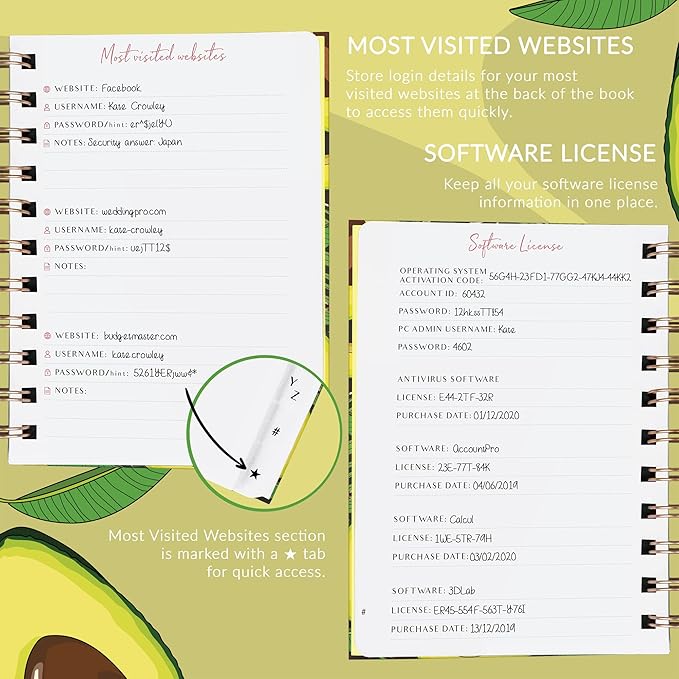 Most visited websites
WEBSITE: Facebook
USERNAME: Kase Crowley
PASSWORD/hint: er^$jelYU
NOTES: Security answer: Japan
WEBSITE: weddingpro.com
USERNAME: kase-crowley
PASSWORD/hint: uejTT12$
NOTES:
WEBSITE: budgetmaster.com
USERNAME: kase.crowley
PASSWORD/hint: 5261YERjww4*
NOTES:
Y
Z
#
★
Most Visited Websites section
is marked with a ★ tab
for quick access.
MOST VISITED WEBSITES
Store login details for your most
visited websites at the back of the book
to access them quickly.
SOFTWARE LICENSE
Keep all your software license
information in one place.
Software License
OPERATING SYSTEM
ACTIVATION CODE: 56G4H-23FD1-77GG2-47KJ4-44KK2
ACCOUNT ID: 60432
PASSWORD: 12hkssTT154
PC ADMIN USERNAME: Kase
PASSWORD: 4602
ANTIVIRUS SOFTWARE
LICENSE: E44-2TF-32R
PURCHASE DATE: 01/12/2020
SOFTWARE: AccountPro
LICENSE: 23E-77T-84K
PURCHASE DATE: 04/06/2019
SOFTWARE: Calcul
LICENSE: 1WE-5TR-79H
PURCHASE DATE: 03/02/2020
SOFTWARE: 3DLab
#
LICENSE: ER45-554F-563T-Y76I
PURCHASE DATE: 13/12/2019